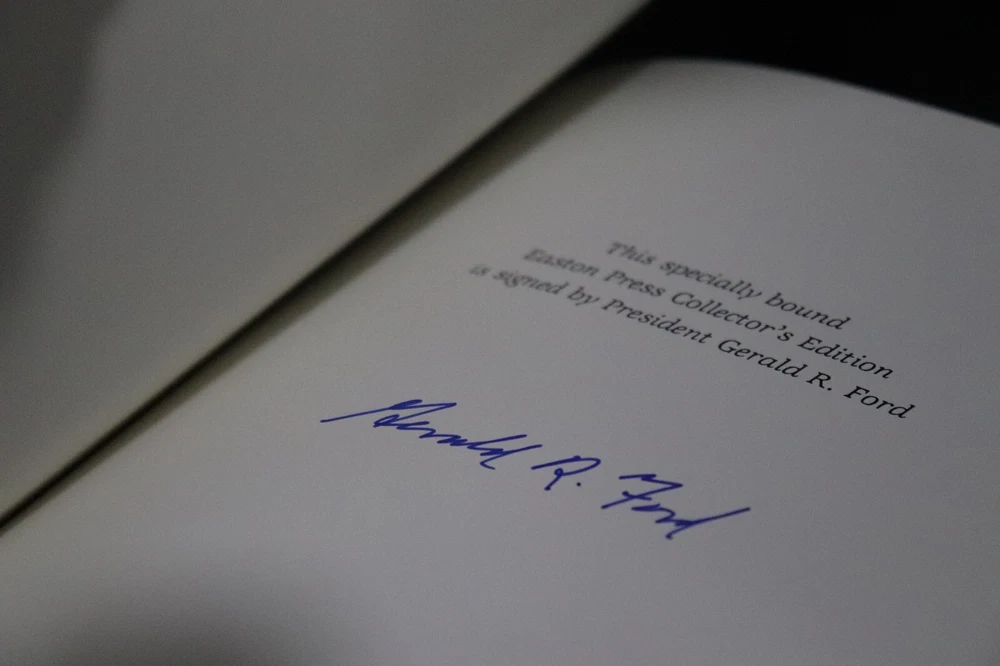 This specially bound
Easton Press Collector's Edition
is signed by President Gerald R. Ford
Gerald R. Ford